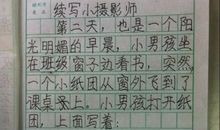 续写小摄影师
第二天，也是一个阳
光明媚的早晨，小男孩坐
在班级窗子边看书，突然
一个小纸团从窗外飞到了
课桌上。小男孩打开纸
团，上面写着：